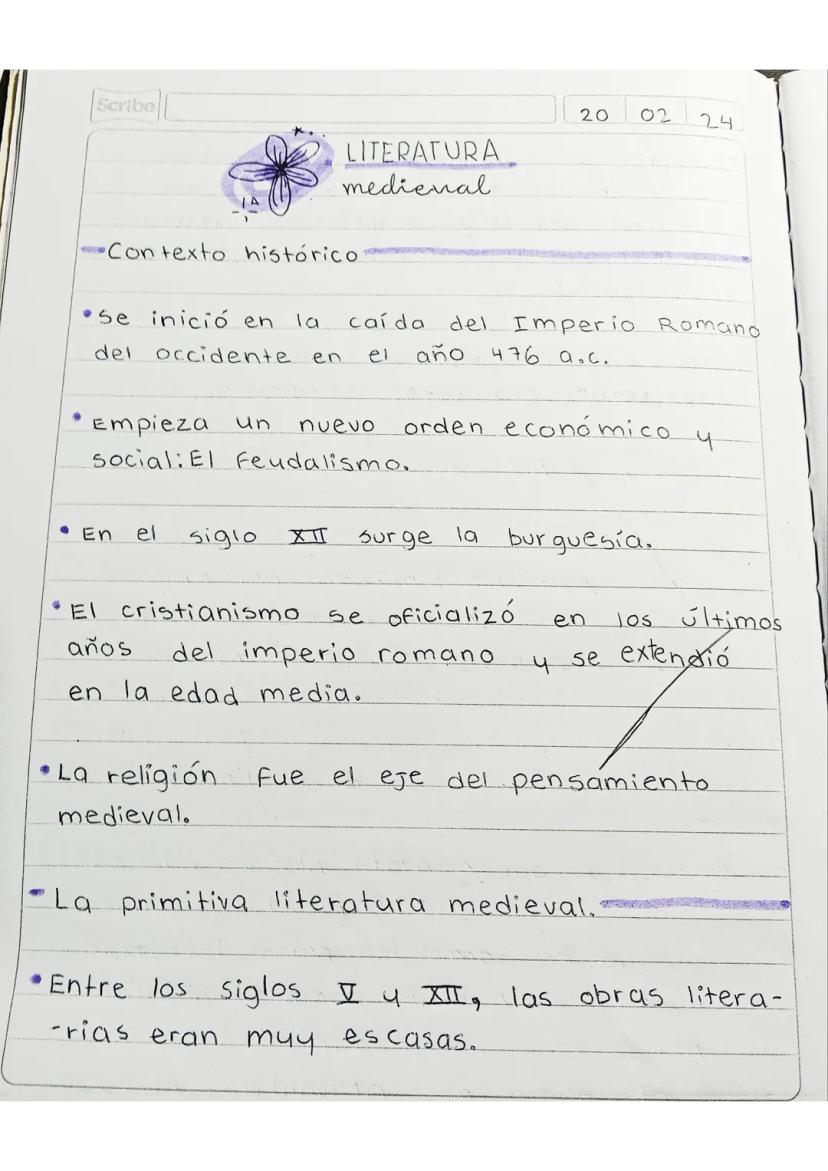 Scribe
20 02 24
LITERATURA
medieval
Contexto histórico
• Se inició en la caída del Imperio Romano
del occidente en el año 476 a.c.
• Empieza un nuevo orden económico y
social: El Feudalismo.
• En el siglo XII surge la burguesía.
• El cristianismo se oficializó en los últimos
años del imperio romano y se extendió
en la edad media.
• La religión fue el eje del pensamiento
medieval.
- La primitiva literatura medieval.
• Entre los siglos V y XII, las obras litera-
-rias eran muy escasas.